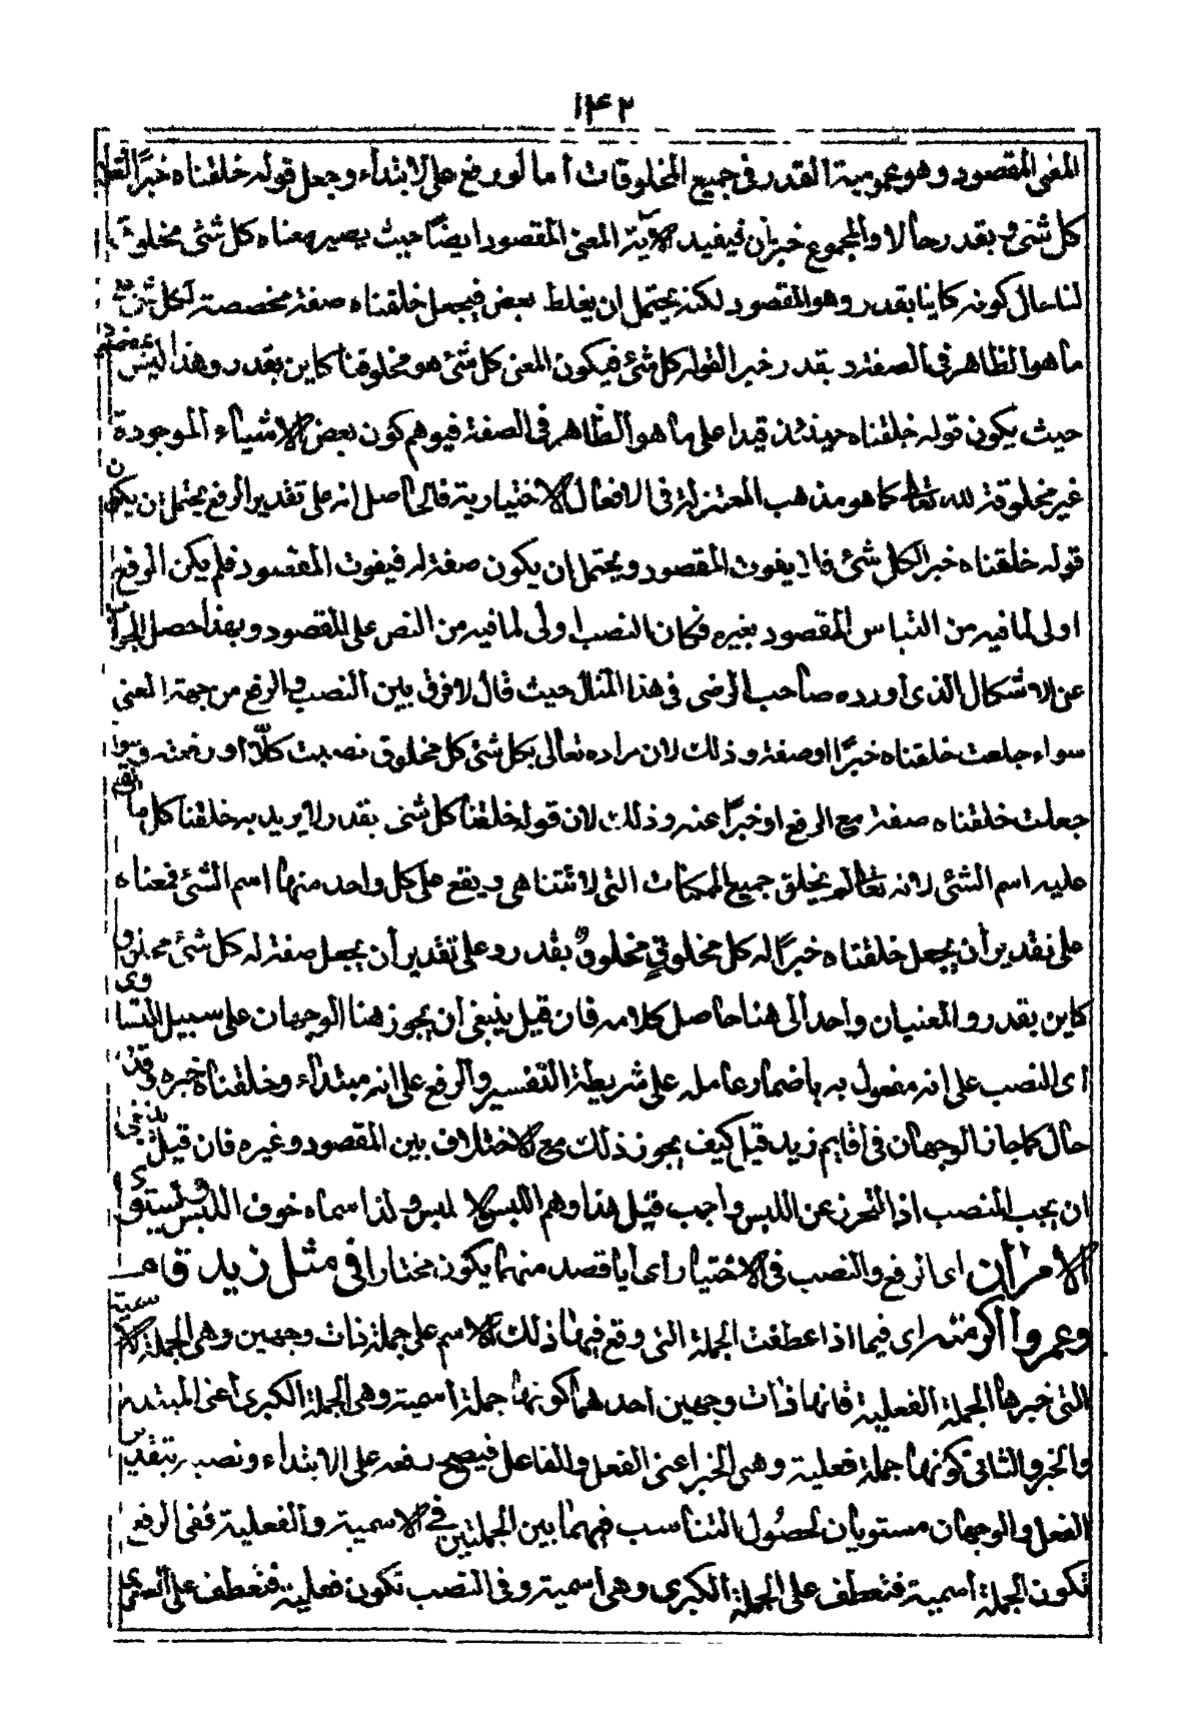 ۱۴۲
المعنى المقصود وهو عمومية القدر فى جميع المخلوقات أما لو رفع على الابتداء وجعل قوله خلقناه خبرًا لقوله
كل شئ وبقدر حالا والمجموع خبر ان فيفيد الآية المعنى المقصود ايضًا حيث يصير معناه كل شئ مخلوق
لنا حال كونه كاينا بقدر وهو المقصود لكنه يحتمل ان يغلط بعض فيجعل خلقناه صفة مخصصة لكل شئ
ما هو الظاهر فى الصفة و بقدر خبر القوله كل شئ فيكون المعنى كل شئ هو مخلوقنا كاين بقدر وهذا ليس
حيث يكون قوله خلقناه حينئذ قيدا على ما هو الظاهر فى الصفة فيوهم كون بعض الاشياء الموجودة
غير مخلوقة لله تعالى كما هو مذهب المعتزلة فى الافعال الاختيارية فالحاصل انه على تقدير الرفع يحتمل ان يكون
قوله خلقناه خبر الكل شئ فلا يفوت المقصود ويحتمل ان يكون صفة له فيفوت المقصود فلم يكن الرفع
اولى لما فيه من التباس المقصود بغيره فكان النصب اولى لما فيه من النص على المقصود وبهذا حصل الجواب
عن الاشكال الذى أورده صاحب الرضى فى هذا المثال حيث قال لا فرق بين النصب والرفع من جهة المعنى
سواء جلعت خلقناه خبرًا اوصفة وذلك لان مراده تعالى بكل شئ كل مخلوق نصبت كلاً أو رفعته وسواء
جعلت خلقناه صفة مع الرفع او خبرًا عنه وذلك لان قوله خلقنا كل شئ بقدر لا يريد به خلقنا كل ما يقع
عليه اسم الشئ لانه تعالى لم يخلق جميع الممكنات التى لا تتناهى ويقع على كل واحد منها اسم الشئ فمعناه
على تقدير أن يجعل خلقناه خبرًا له كل مخلوقٍ مخلوقٌ بقدر وعلى تقدير أن يجعل صفة له كل شئ مخلوق
كاين بقدر والمعنيان واحد الى هنا حاصل كلامه فان قيل ينبغى أن يجوز هنا الوجهان على سبيل التساوى
اى النصب على انه مفعول به باضمار عامله على شريطة التفسير والرفع على انه مبتداء وخلقناه خبره وقد
حال كما جاز الوجهان فى قايم زيد قيل كيف يجوز ذلك مع الاختلاف بين المقصود وغيره فان قيل ينبغى
ان يجب النصب اذ التحرز عن اللبس واجب قيل هذا وهم اللبس لا لبس ولذا سماه خوف اللبس ويستوى
الامران اى الرفع والنصب فى الاختيار اى ايا قصد منهما يكون مختارا فى مثل زيد قام
وعمروا اكرمته اى فيما اذا عطفت الجملة التى وقع فيها ذلك الاسم على جملة ذات وجهين وهى الجملة الاسمية
التى خبرها الجملة الفعلية فانها ذات وجهين احدهما كونها جملة اسمية وهى الجملة الكبرى أعنى المبتدء
والخبر والثانى كونها جملة فعلية وهى الخبر اعنى الفعل والفاعل فيصح رفعه على الابتداء ونصبه بتقدير
الفعل والوجهان مستويان لحصول التناسب فيهما بين الجملتين فى الاسمية والفعلية ففى الرفع
تكون الجملة اسمية فتعطف على الجملة الكبرى وهى اسمية وفى النصب تكون فعلية فتعطف على الصغرى